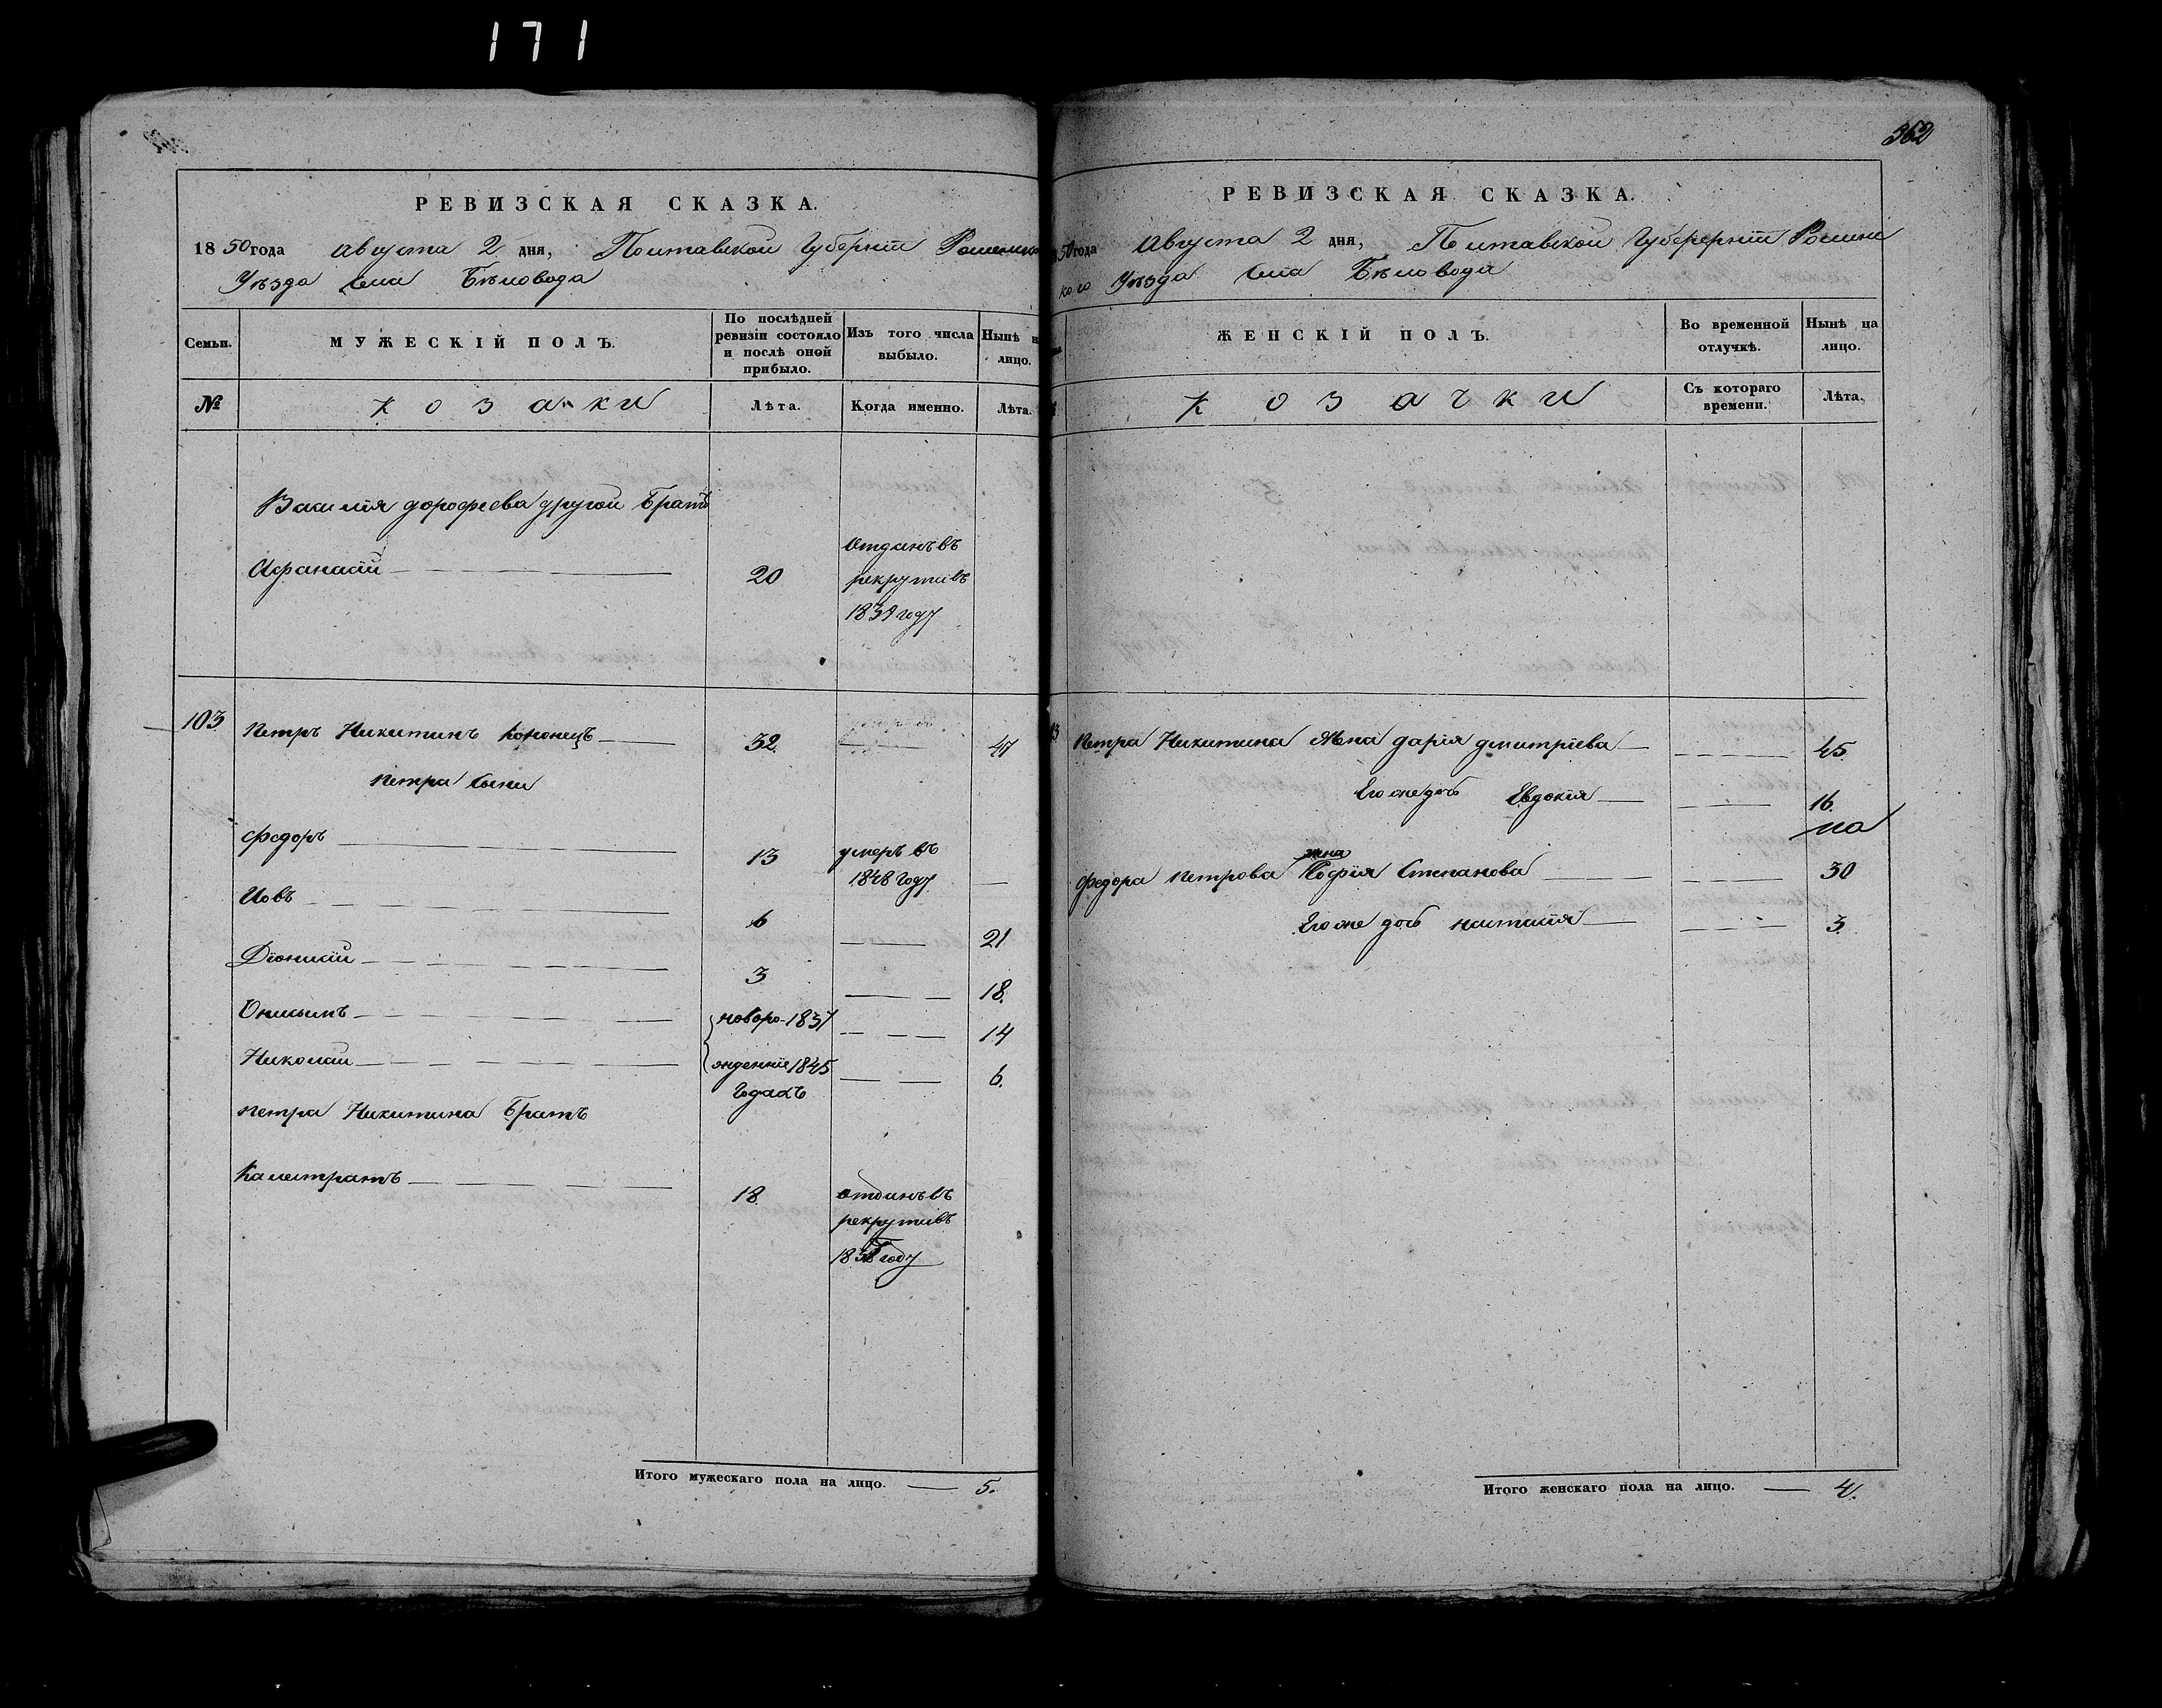 171
РЕВИЗСКАЯ СКАЗКА.
1850 года Августа 2 дня, Полтавской Губерніи Роменско
Уѣзда села Бѣловода
Семьи.
МУЖЕСКІЙ ПОЛЪ.
По послѣдней ревизіи состояло и послѣ оной прибыло.
Изъ того числа выбыло.
Нынѣ н лицо.
№
Козаки
Лѣта.
Когда именно.
Лѣта.
Василія дорофеева другой братъ
Афанасій 20 Отданъ въ
рекруты въ
1839 году
103 Петръ Никитинъ Кононецъ 32 47
Петра сыни
Федоръ 13 умеръ въ
1848 году
Иовъ 6 21
Діонисій 3 18.
Онисимъ новоро- 1837 14
Николай жденніе 1845 6.
годахъ
Петра Никитина братъ
Калистратъ 18 отданъ въ
рекруты въ
году
Итого мужескаго пола на лицо. 5.
362
РЕВИЗСКАЯ СКАЗКА.
50 года Августа 2 дня, Полтавской Губерерніи Роменс
кого Уѣзда села Бѣловода
ЖЕНСКІЙ ПОЛЪ.
Во временной отлучкѣ.
Нынѣ на лицо.
Козачки
Съ котораго времени.
Лѣта.
Петра Никитина жена дарія дмитріева 45.
Его же дочь Евдокія 16.
жена
Федора Петрова Софія Степанова 30
Его же дочь настасія 3.
Итого женскаго пола на лицо. 4.